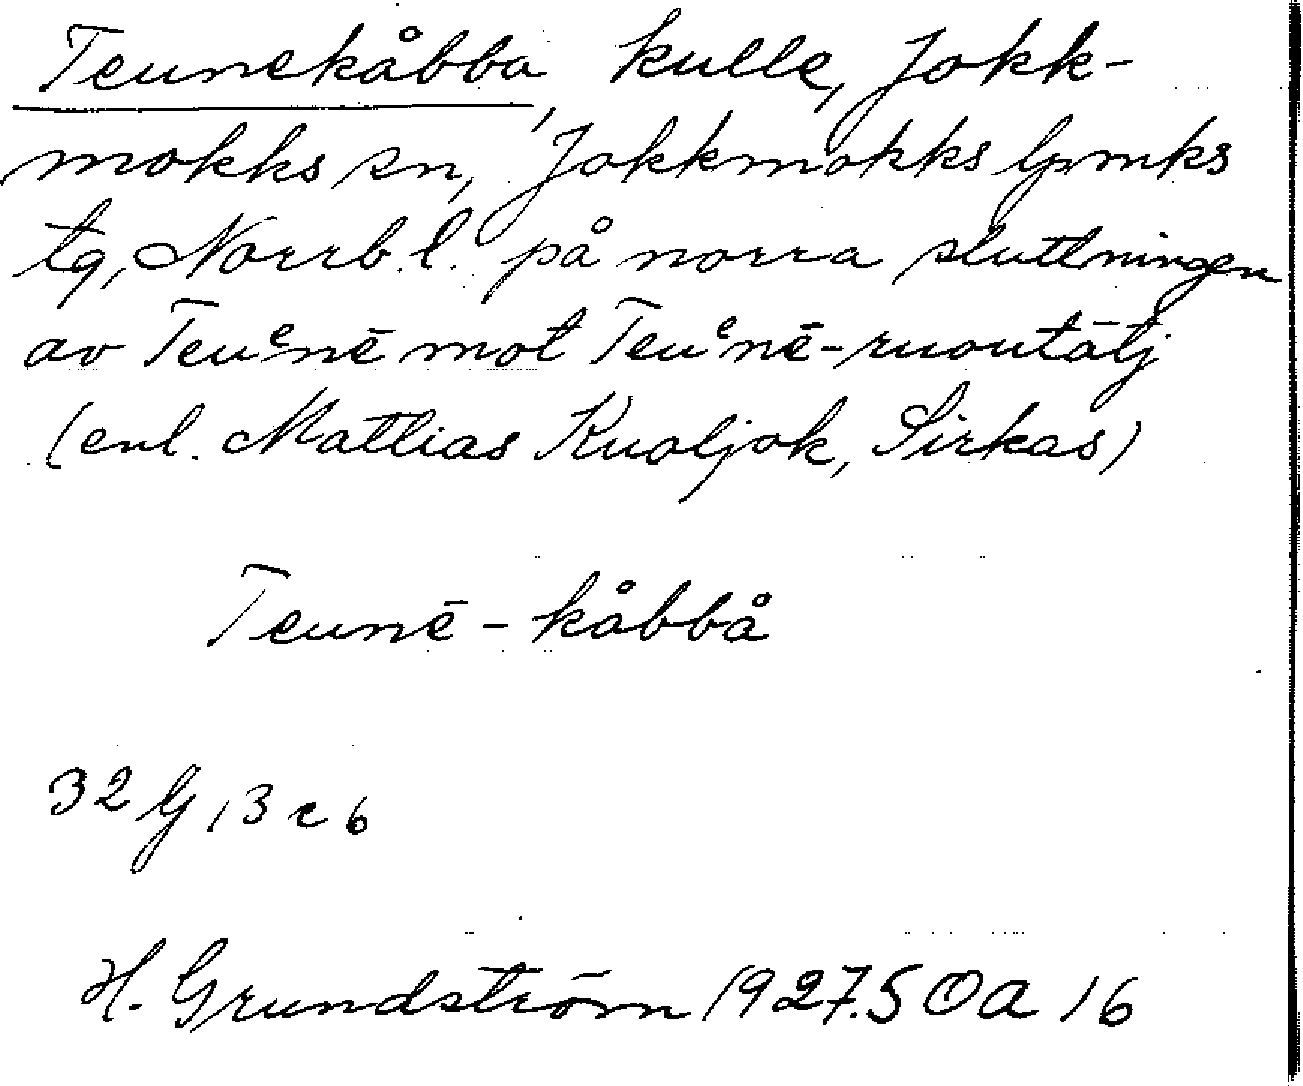 Teunekåbba, kulle, Jokk-
mokks sn, Jokkmokks lpmks
tg, Norrb.l. på norra sluttningen
av Teuᵉnē mot Teuᵉnē-ruoutātj
(enl. Mattias Kuoljok, Sirkas)
Teunē-kåbbå
32 G 13 c 6
H. Grundström 1927. SOA 16